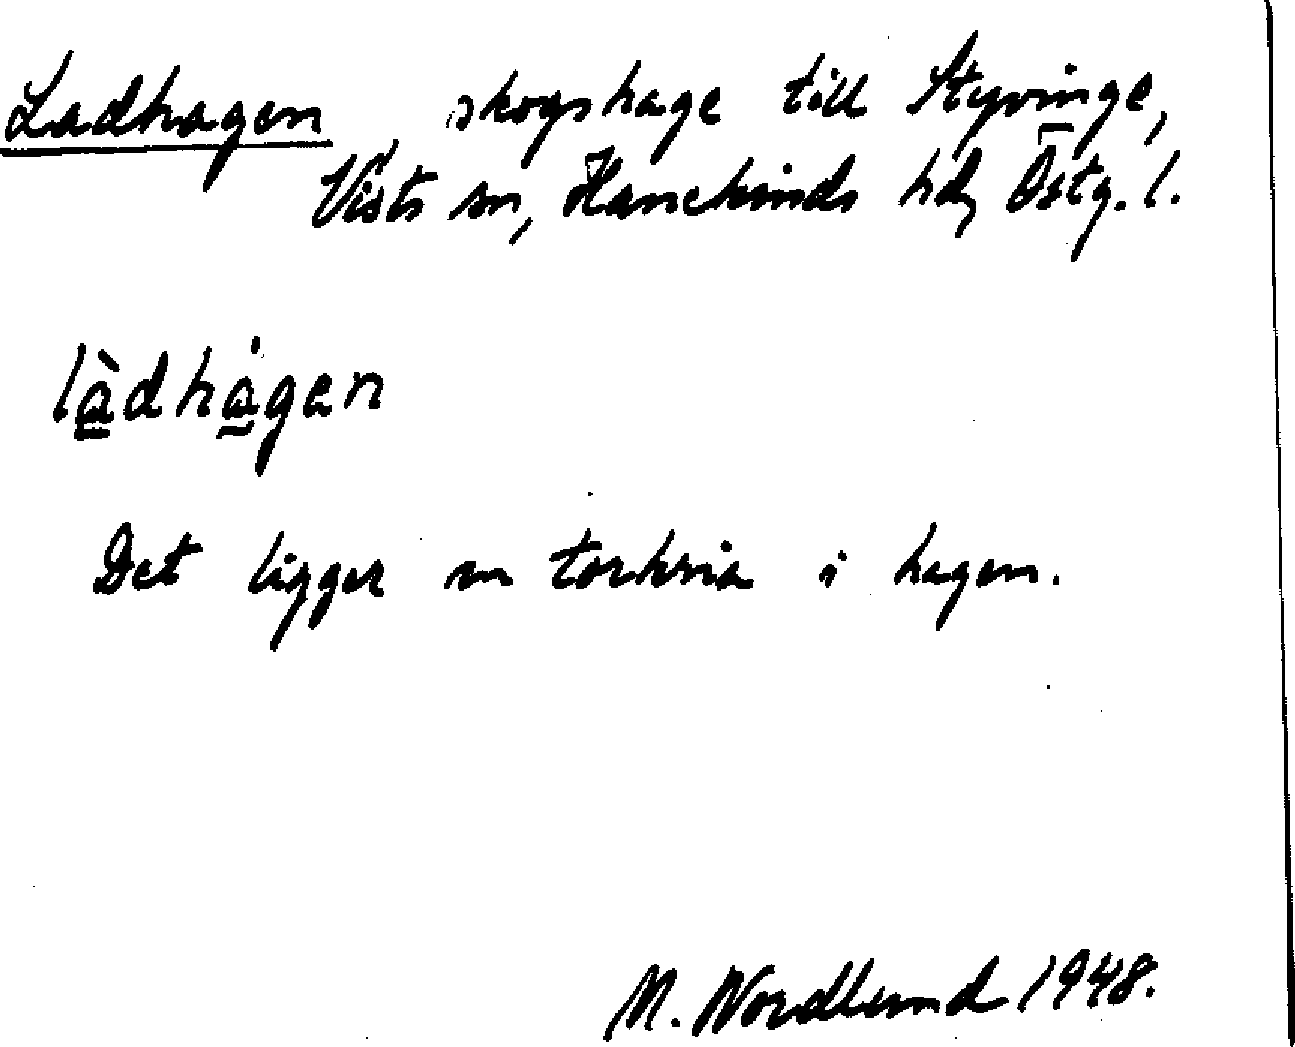 Ladhagen, skogshage till Styvinge,
Vists sn, Hanekinds hd, Östg. l.
làdhágen
Det ligger en torkria i hagen.
M. Nordlund 1948.